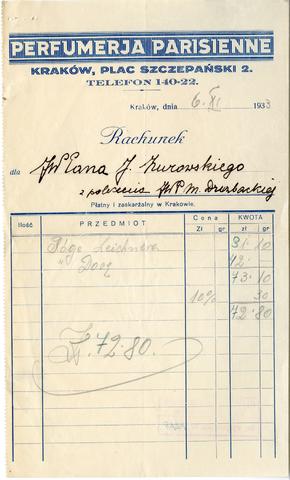 PERFUMERJA PARISIENNE
KRAKÓW, PLAC SZCZEPAŃSKI 2.
TELEFON 140-22.
Kraków, dnia 6. XI 1933
Rachunek
dla JWPana J. Żurowskiego
z polecenia JWP. M. Drużbackiej
Płatny i zaskarżalny w Krakowie.
Ilość PRZEDMIOT Cena KWOTA
Zł gr zł gr
Leichnera 10
" 12
73 10
10% 30
72 80
Zł. 72.80.